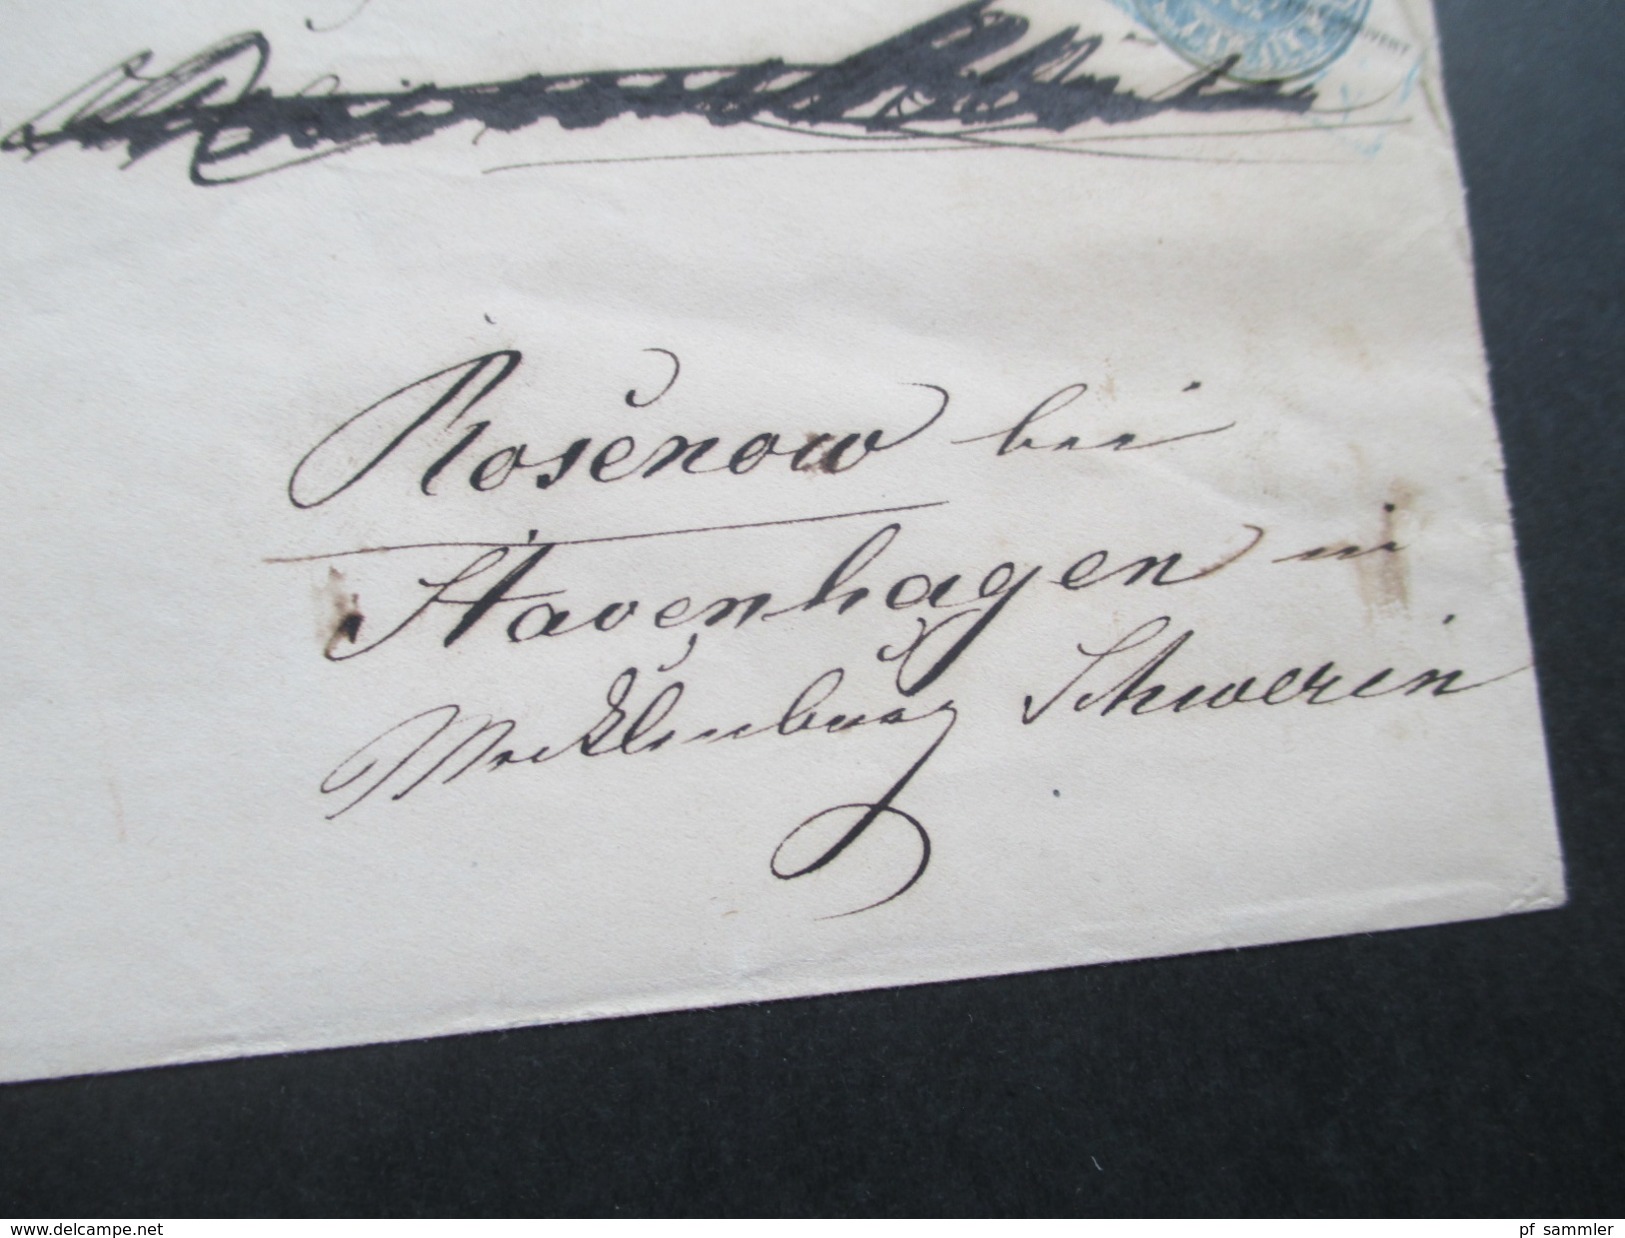 Rosenow bei
Stavenhagen in
Mecklenburg Schwerin
www.delcampe.net
pf_sammler